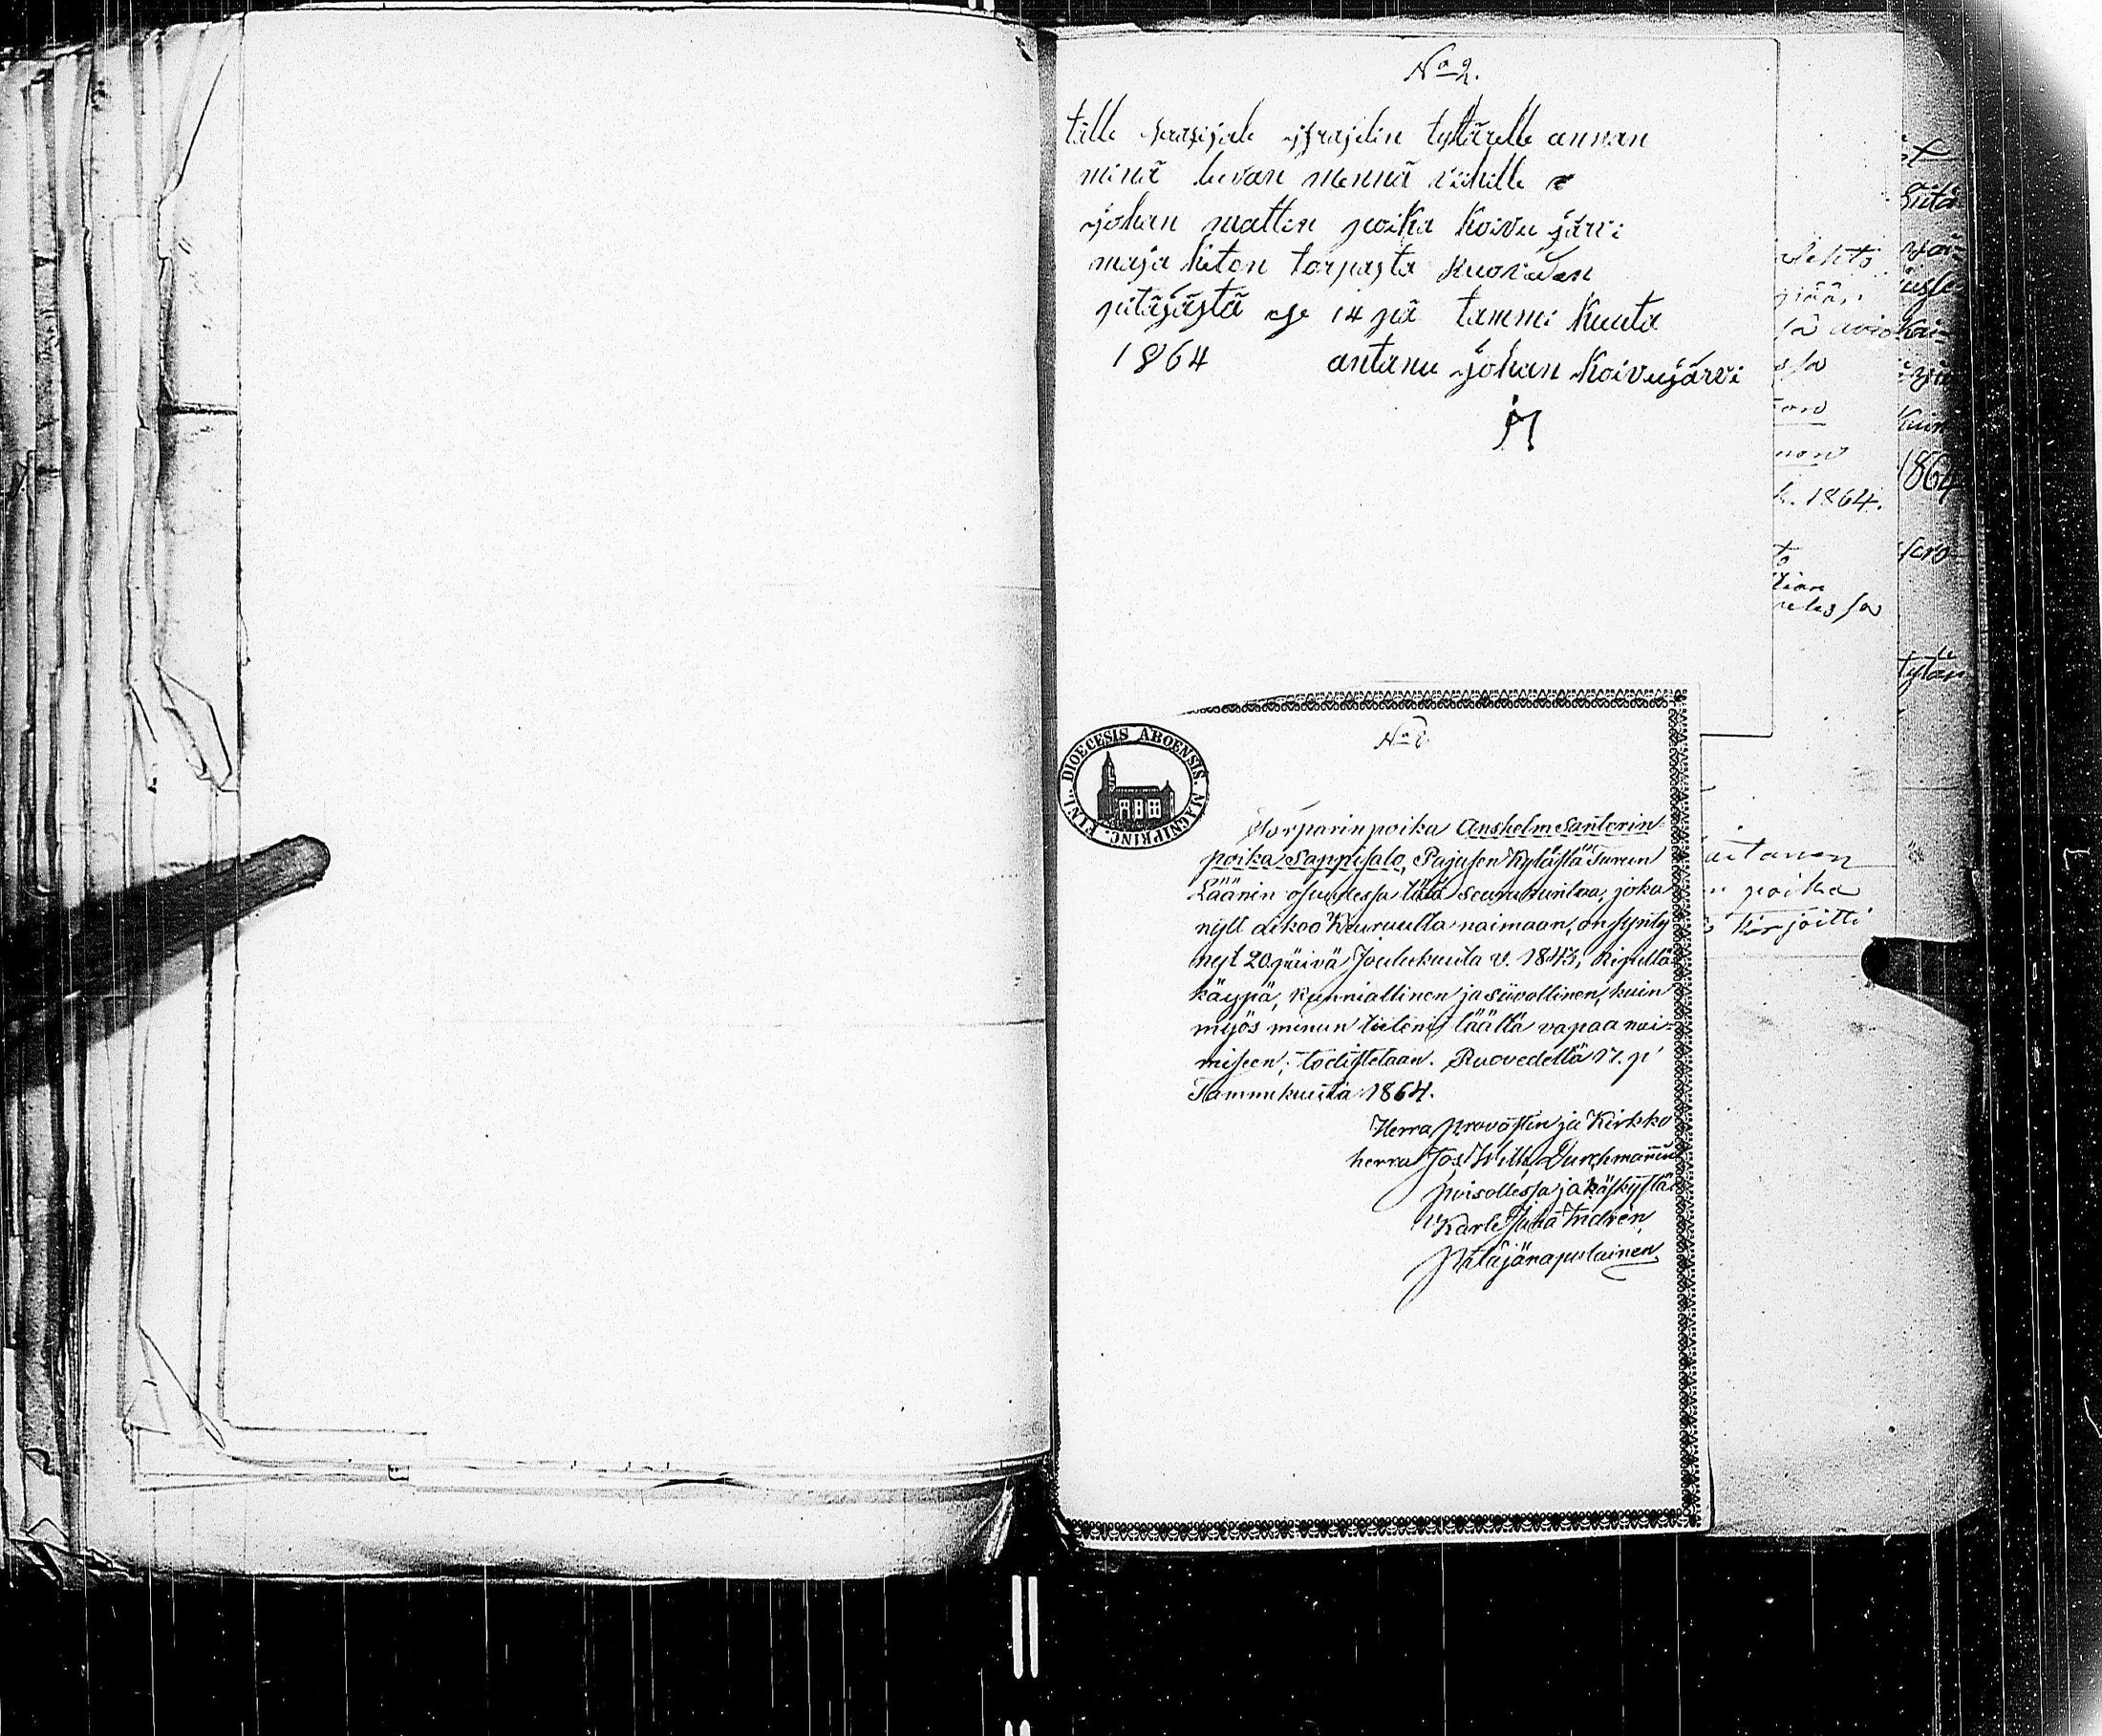 No 2.
tälle isräjelin tyttärelle annan
minä luvan mennä vihille
johan matten poika Koivu järvi
maja kiton torpasta
pitäjästä se 14 pä tammi Kuuta
1864 antanu johan Koivujärvi
No
Torparinpoika Anshelm Santerin
poika Sappisalo, Pajusen Kylästä Turun
Läänin osuudessa tätä seurakuntaa, joka
nyt aikoo Keuruulta naimaan, on synty
nyt 20 päivä Joulukuuta v. 1843, Ripillä
käypä, kunniallinen ja siivollinen, kuin
myös minun tieteni täältä vapaa nai-
miseen; todistetaan. Ruovedellä 17. p
Tammikuuta 1864.
Herra provastin ja Kirkko
herra Jos. Wilh. Durchmannin
poisollessa ja käskystä
Karle Juha Indrén
Pitäjänapulainen
DIOECESIS ABOENSIS. MAGNIPRINC. FINL.
lehto
1864.
poika
kirjoitti
1864
tytän